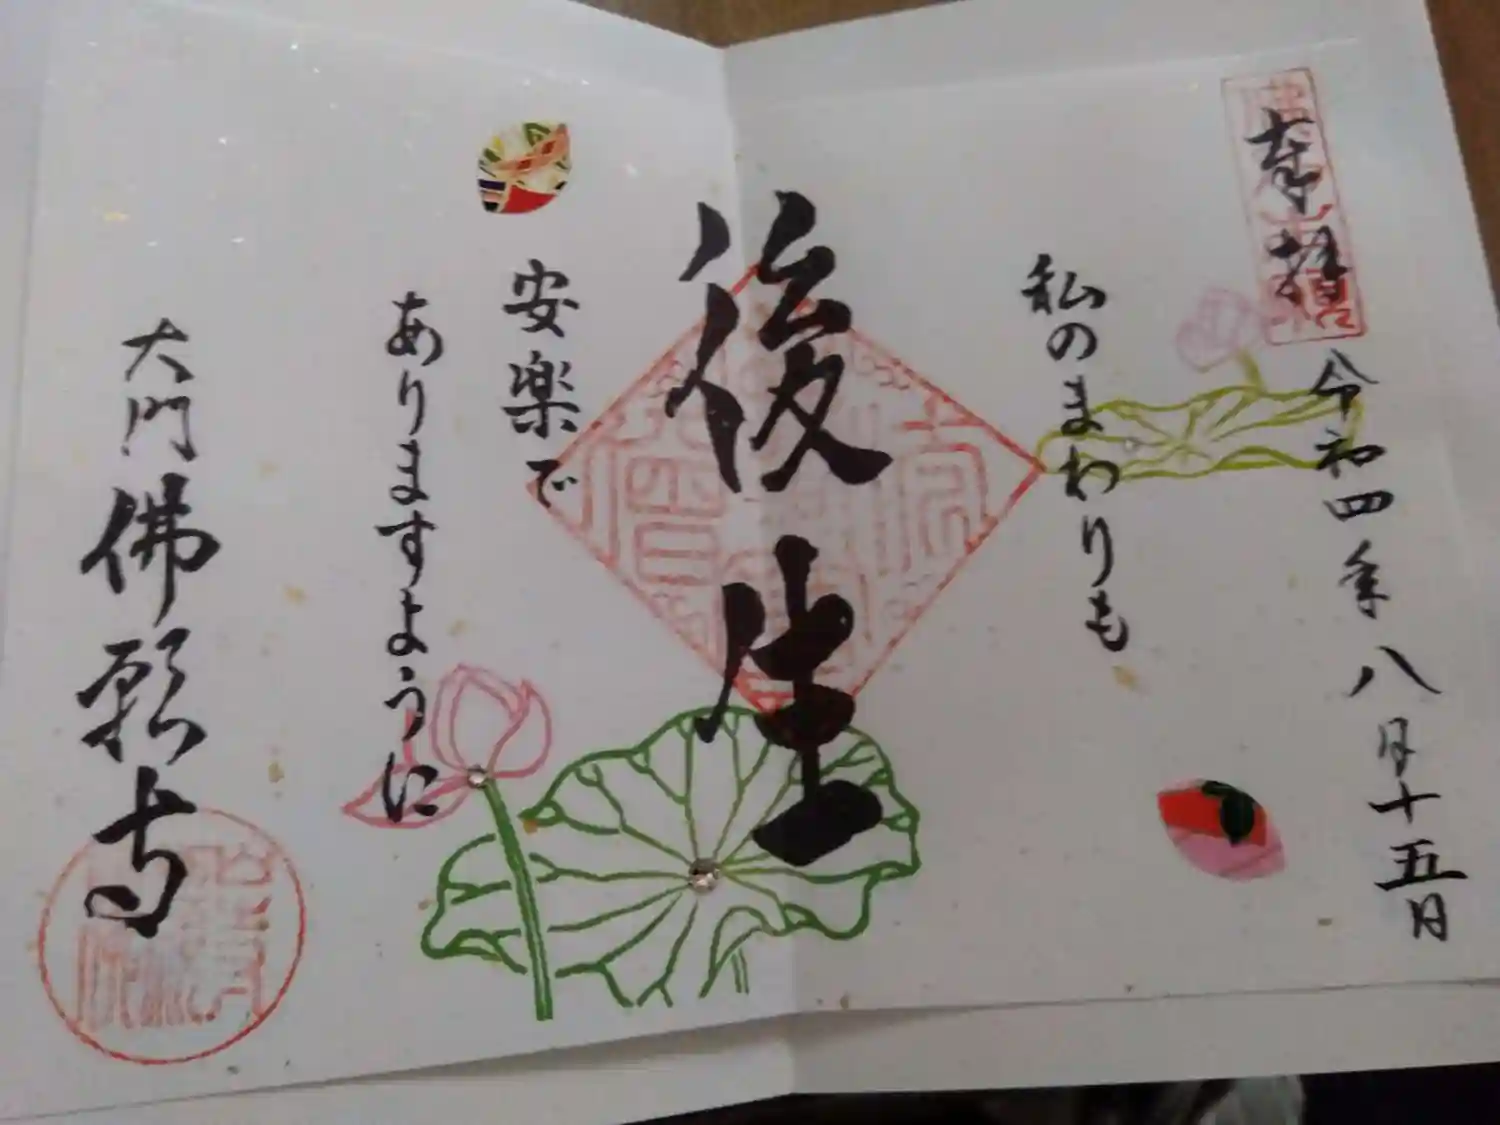 奉拝
令和四年八月十五日
私のまわりも
後生
安楽で
ありますように
大門
佛願寺